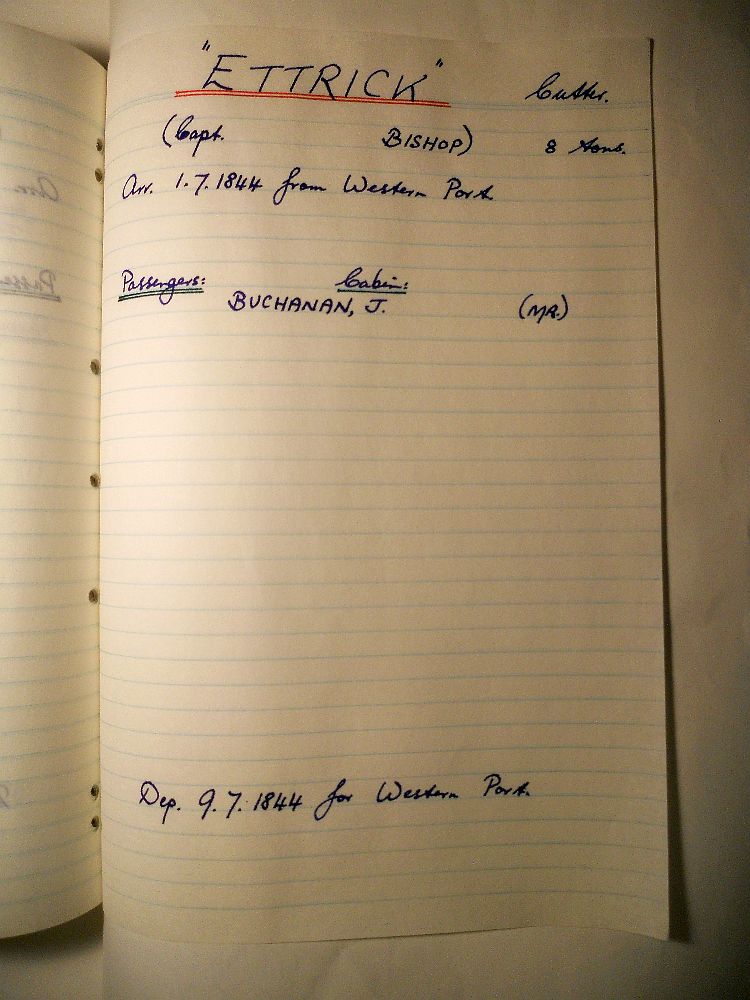 "ETTRICK" Cutter.
(Capt. BISHOP) 8 Tons.
Arr. 1.7.1844 from Western Port.
Passengers: Cabin:
BUCHANAN, J. (MR.)
Dep. 9.7.1844 for Western Port.